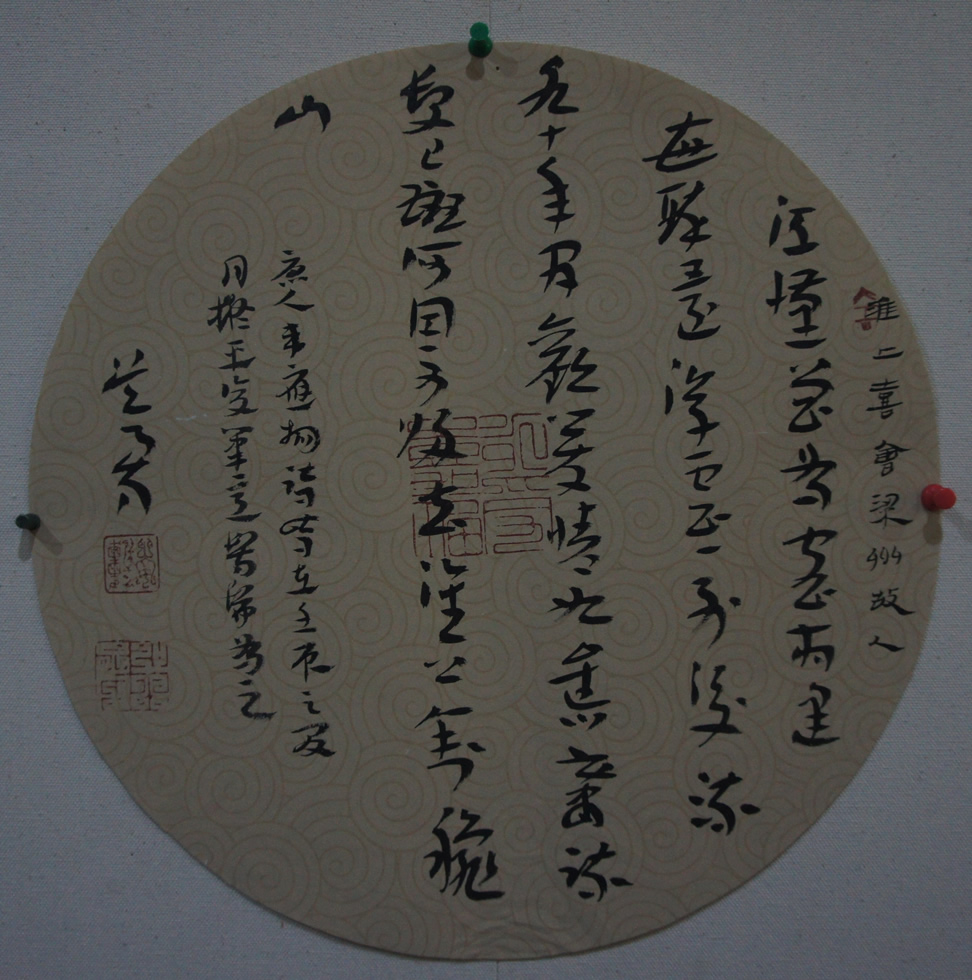 淮上喜會梁州故人
江漢曾為客相逢
每醉還浮雲一別後流
水十年間歡笑情如舊蕭疏
鬢已斑何因不歸去淮上有秋
山
唐人韋應物詩時在壬辰之夏
月擬王軍意為之